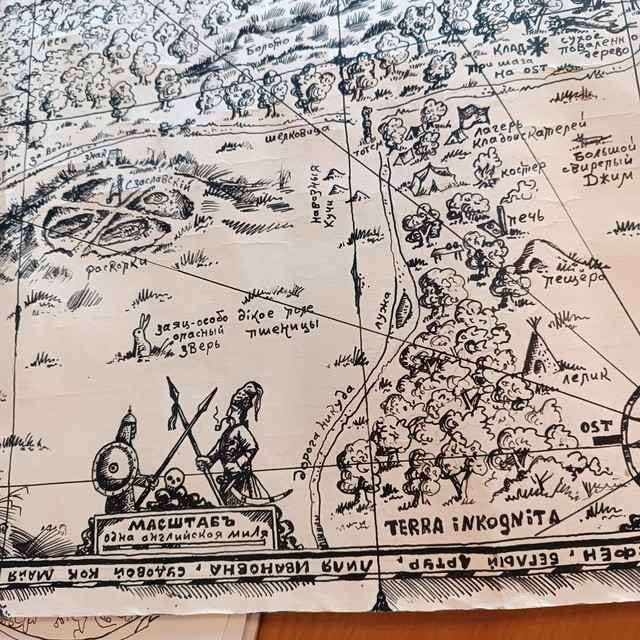 леса
Болото
КЛАД
сухое
поваленное
дерево
три шага
на ost
шелковица
тотем
лагерь
кладоискателей
костер
Большой
свирепый
Джим
знак
Изяславский
навозныя
кучи
печь
раскопки
пещера
лужа
заяц-особо
опасный
зверь
дiкое поле
пшеницы
лелик
дорога никуда
OST
TERRA iNKOGNiTA
МАСШТАБЪ
одна английская миля
ФОЕН, БЕГЛЫЙ АРТУР, ЛИЛЯ ИВАНОВНА, СУДОВОЙ КОК МАЙЯ